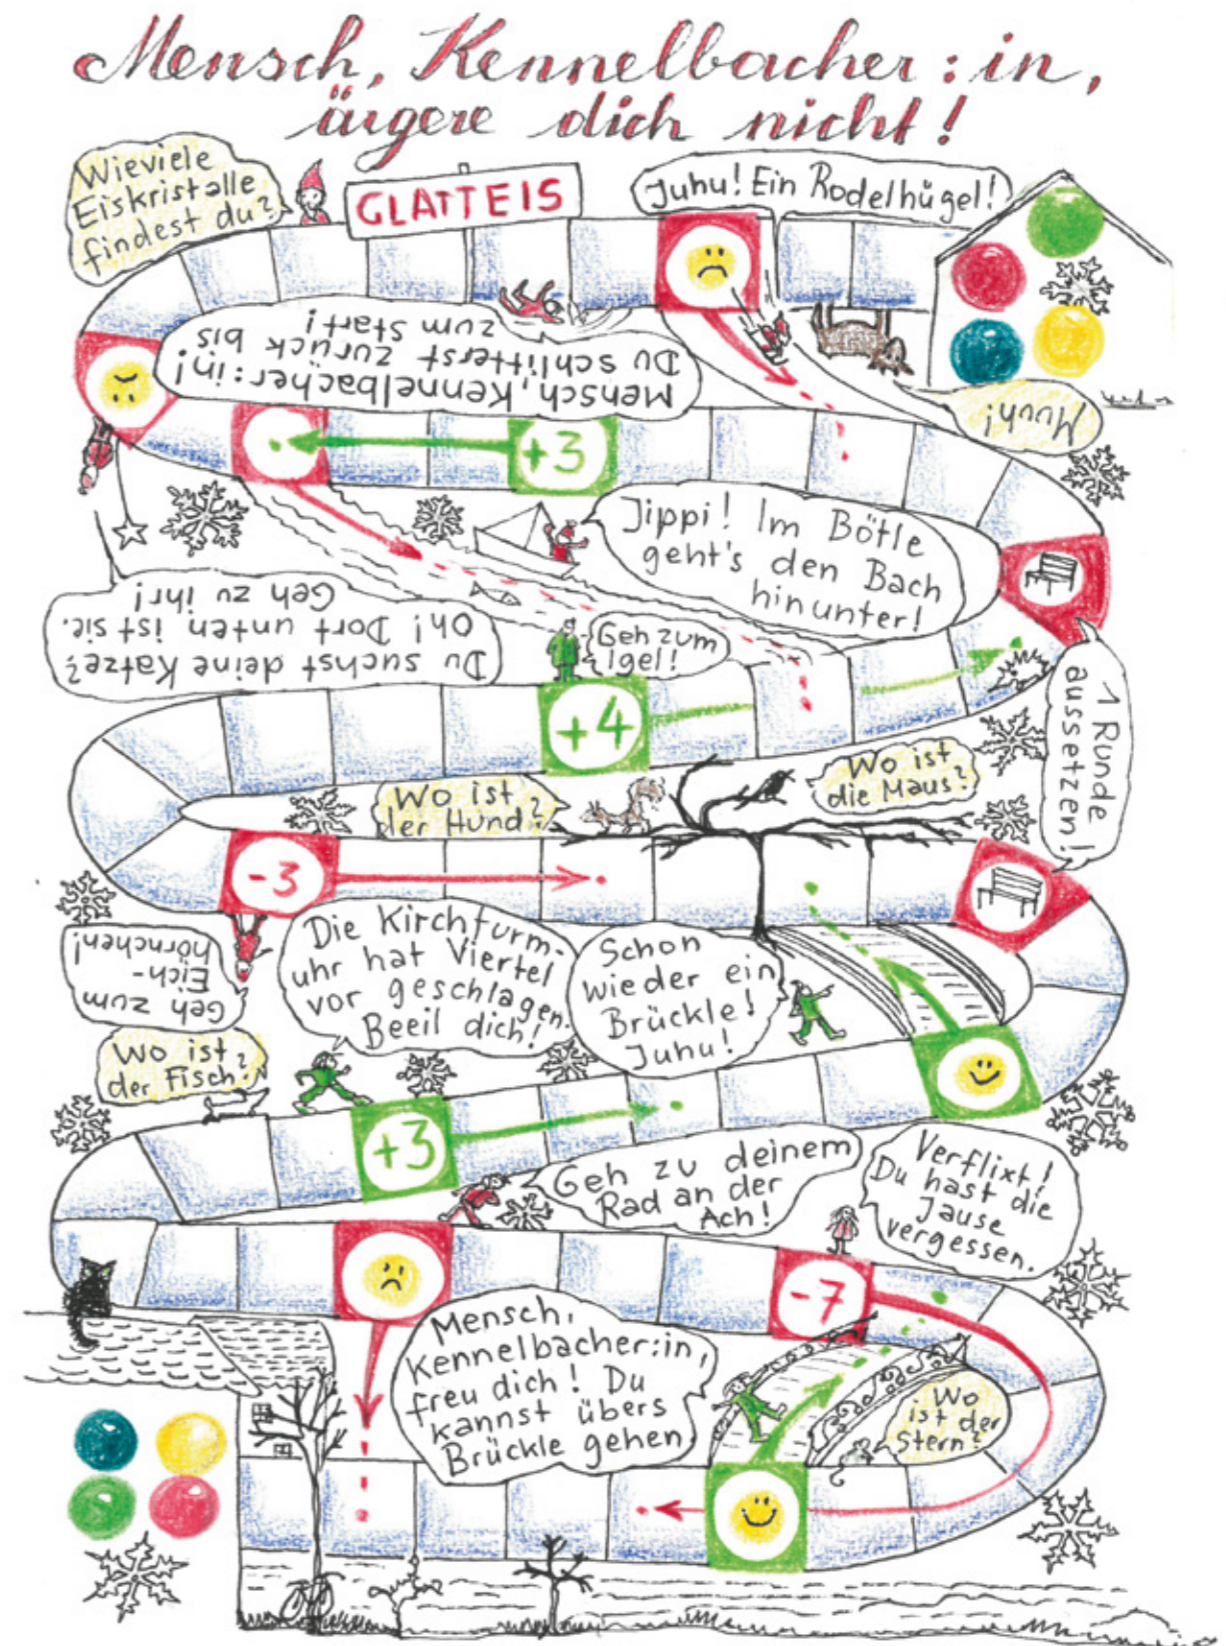 Mensch, Kennelbacher:in,
ärgere dich nicht!
Wieviele
Eiskristalle
findest du?
GLATTEIS
Juhu! Ein Rodelhügel!
Mensch, Kennelbacher:in!
Du schlitterst zurück bis
zum Start!
Muuh!
+3
Jippi! Im Bötle
geht's den Bach
hinunter!
Du suchst deine Katze?
Oh! Dort unten ist sie.
Geh zu ihr!
Geh zum
Igel!
+4
1 Runde
aussetzen!
Wo ist
der Hund?
Wo ist
die Maus?
-3
Geh zum
Eich-
hörnchen!
Die Kirchturm-
uhr hat Viertel
vor geschlagen.
Beeil dich!
Schon
wieder ein
Brückle!
Juhu!
Wo ist
der Fisch?
+3
Geh zu deinem
Rad an der
Ach!
Verflixt!
Du hast die
Jause
vergessen.
-7
Mensch,
Kennelbacher:in,
freu dich! Du
kannst übers
Brückle gehen.
Wo
ist der
Stern?